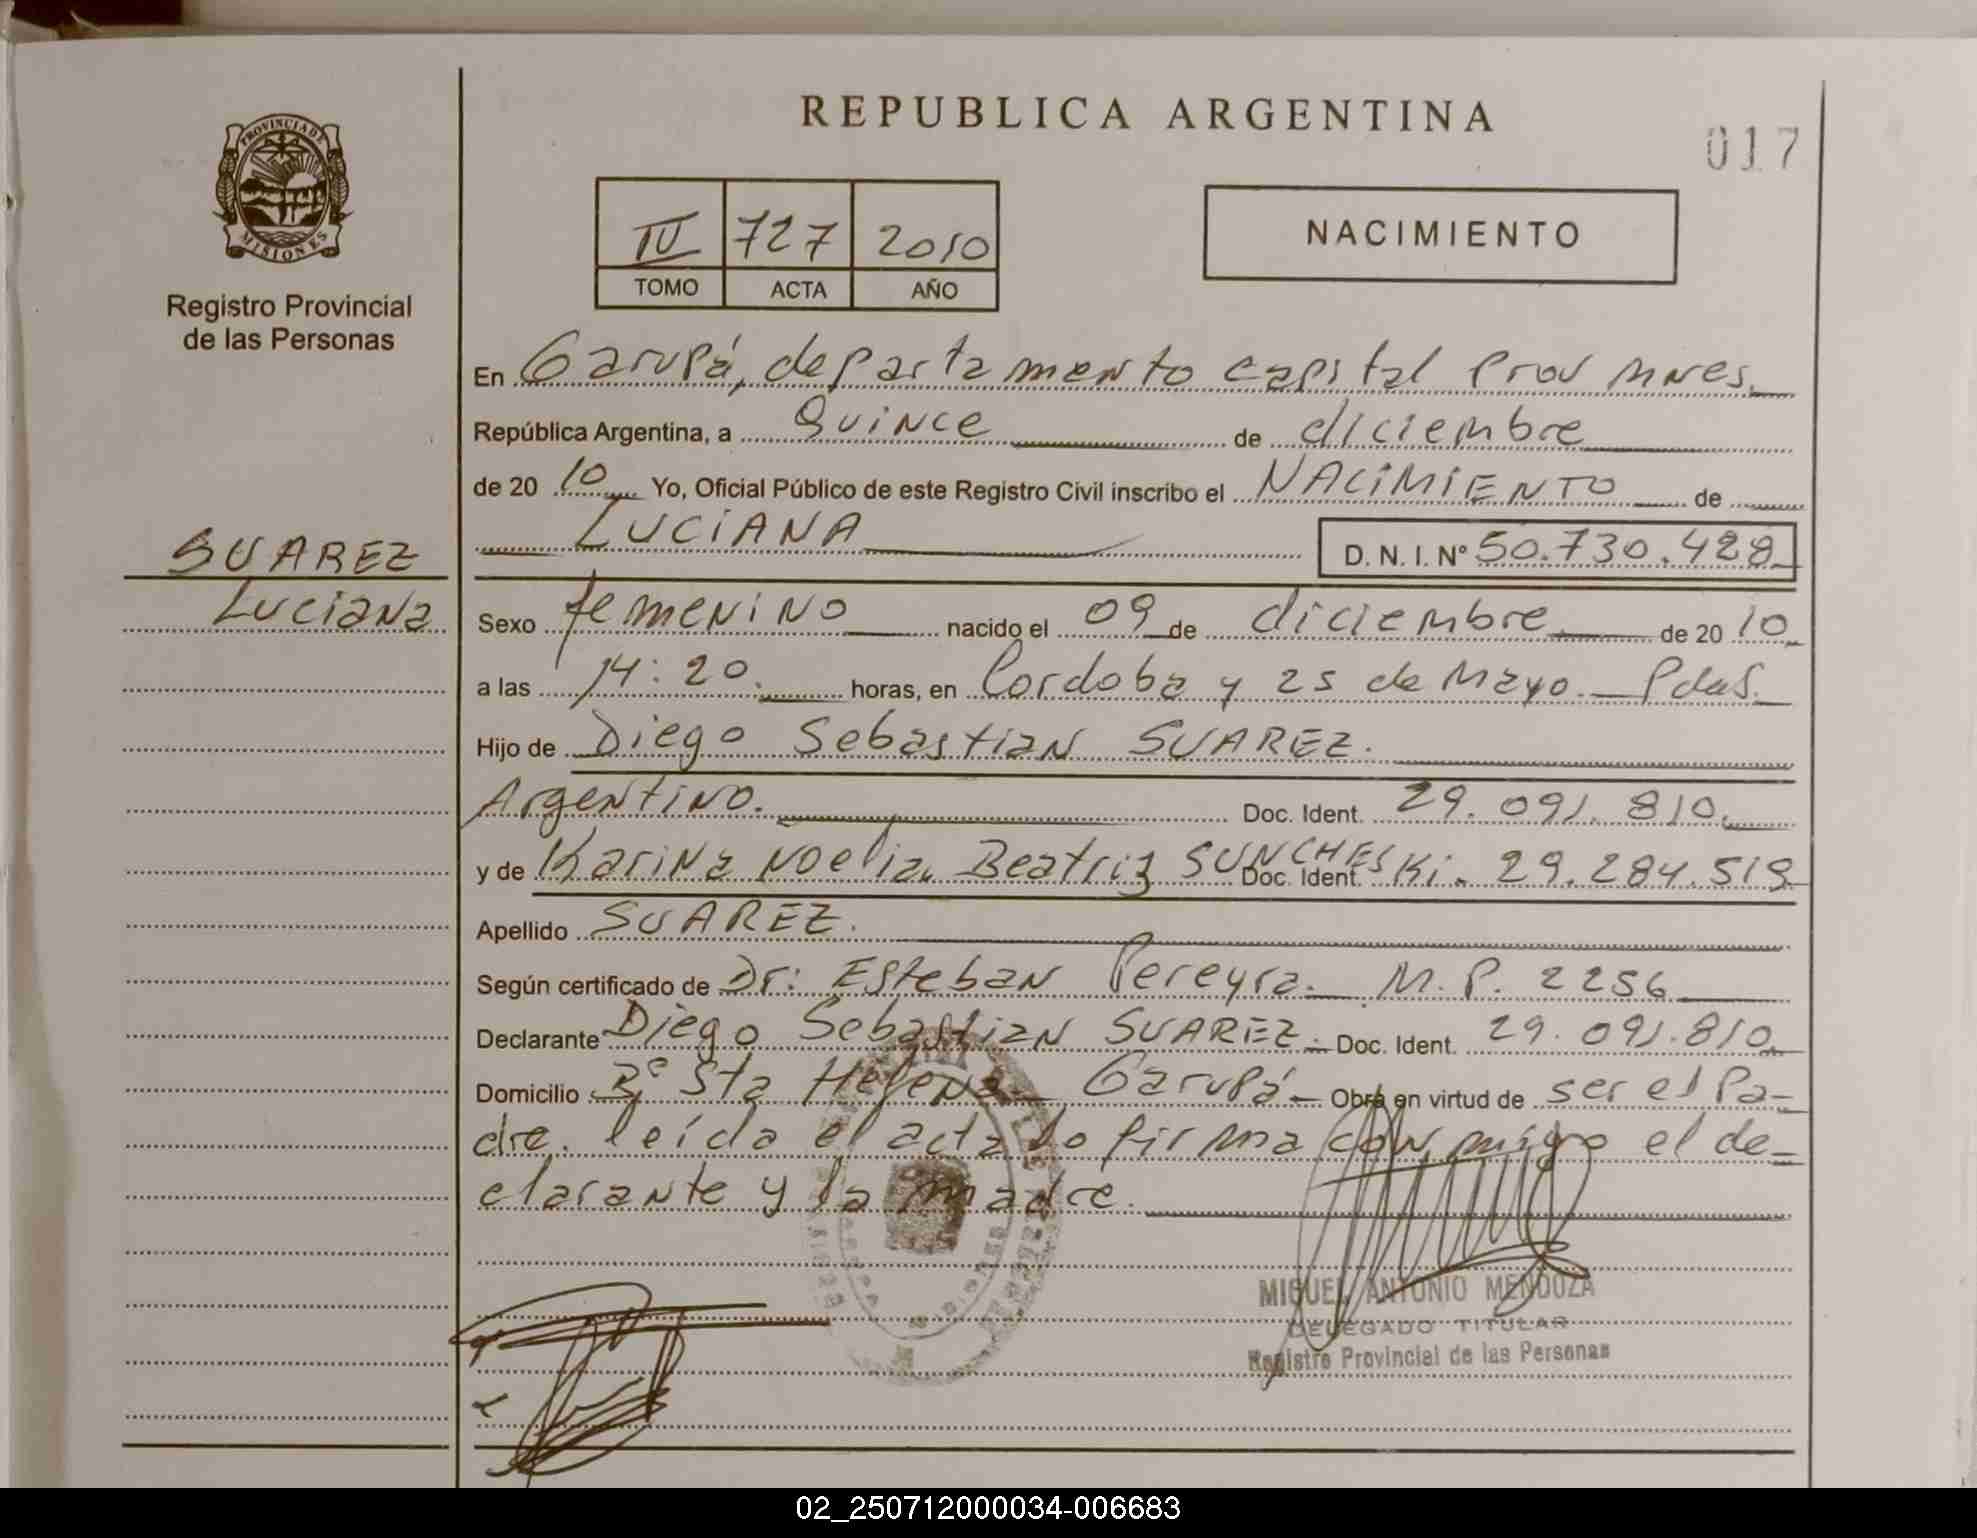 REPUBLICA ARGENTINA
017
PROVINCIA DE
MISIONES
Registro Provincial
de las Personas
IV 727 2010
TOMO ACTA AÑO
NACIMIENTO
En Garupá, departamento capital Prov Mnes.
República Argentina, a Quince de diciembre
de 20 10 Yo, Oficial Público de este Registro Civil inscribo el NACIMIENTO de
LUCIANA D. N. I. N° 50.730.428
SUAREZ
Luciana
Sexo femenino nacido el 09 de diciembre de 20 10
a las 14:20. horas, en Cordoba y 25 de Mayo. Pdas.
Hijo de Diego Sebastian SUAREZ.
Argentino. Doc. Ident. 29.091.810.
y de Karina Noelia Beatriz SUNCHESKi. Doc. Ident. 29.284.519
Apellido SUAREZ.
Según certificado de Dr: Esteban Pereyra. M.P. 2256
Declarante Diego Sebastian SUAREZ. Doc. Ident. 29.091.810
Domicilio B° Sta Helena Garupá Obra en virtud de ser el Pa-
dre. leída el acta lo firma conmigo el de-
clarante y la madre.
MIGUEL ANTONIO MENDOZA
DELEGADO TITULAR
Registro Provincial de las Personas
02_250712000034-006683